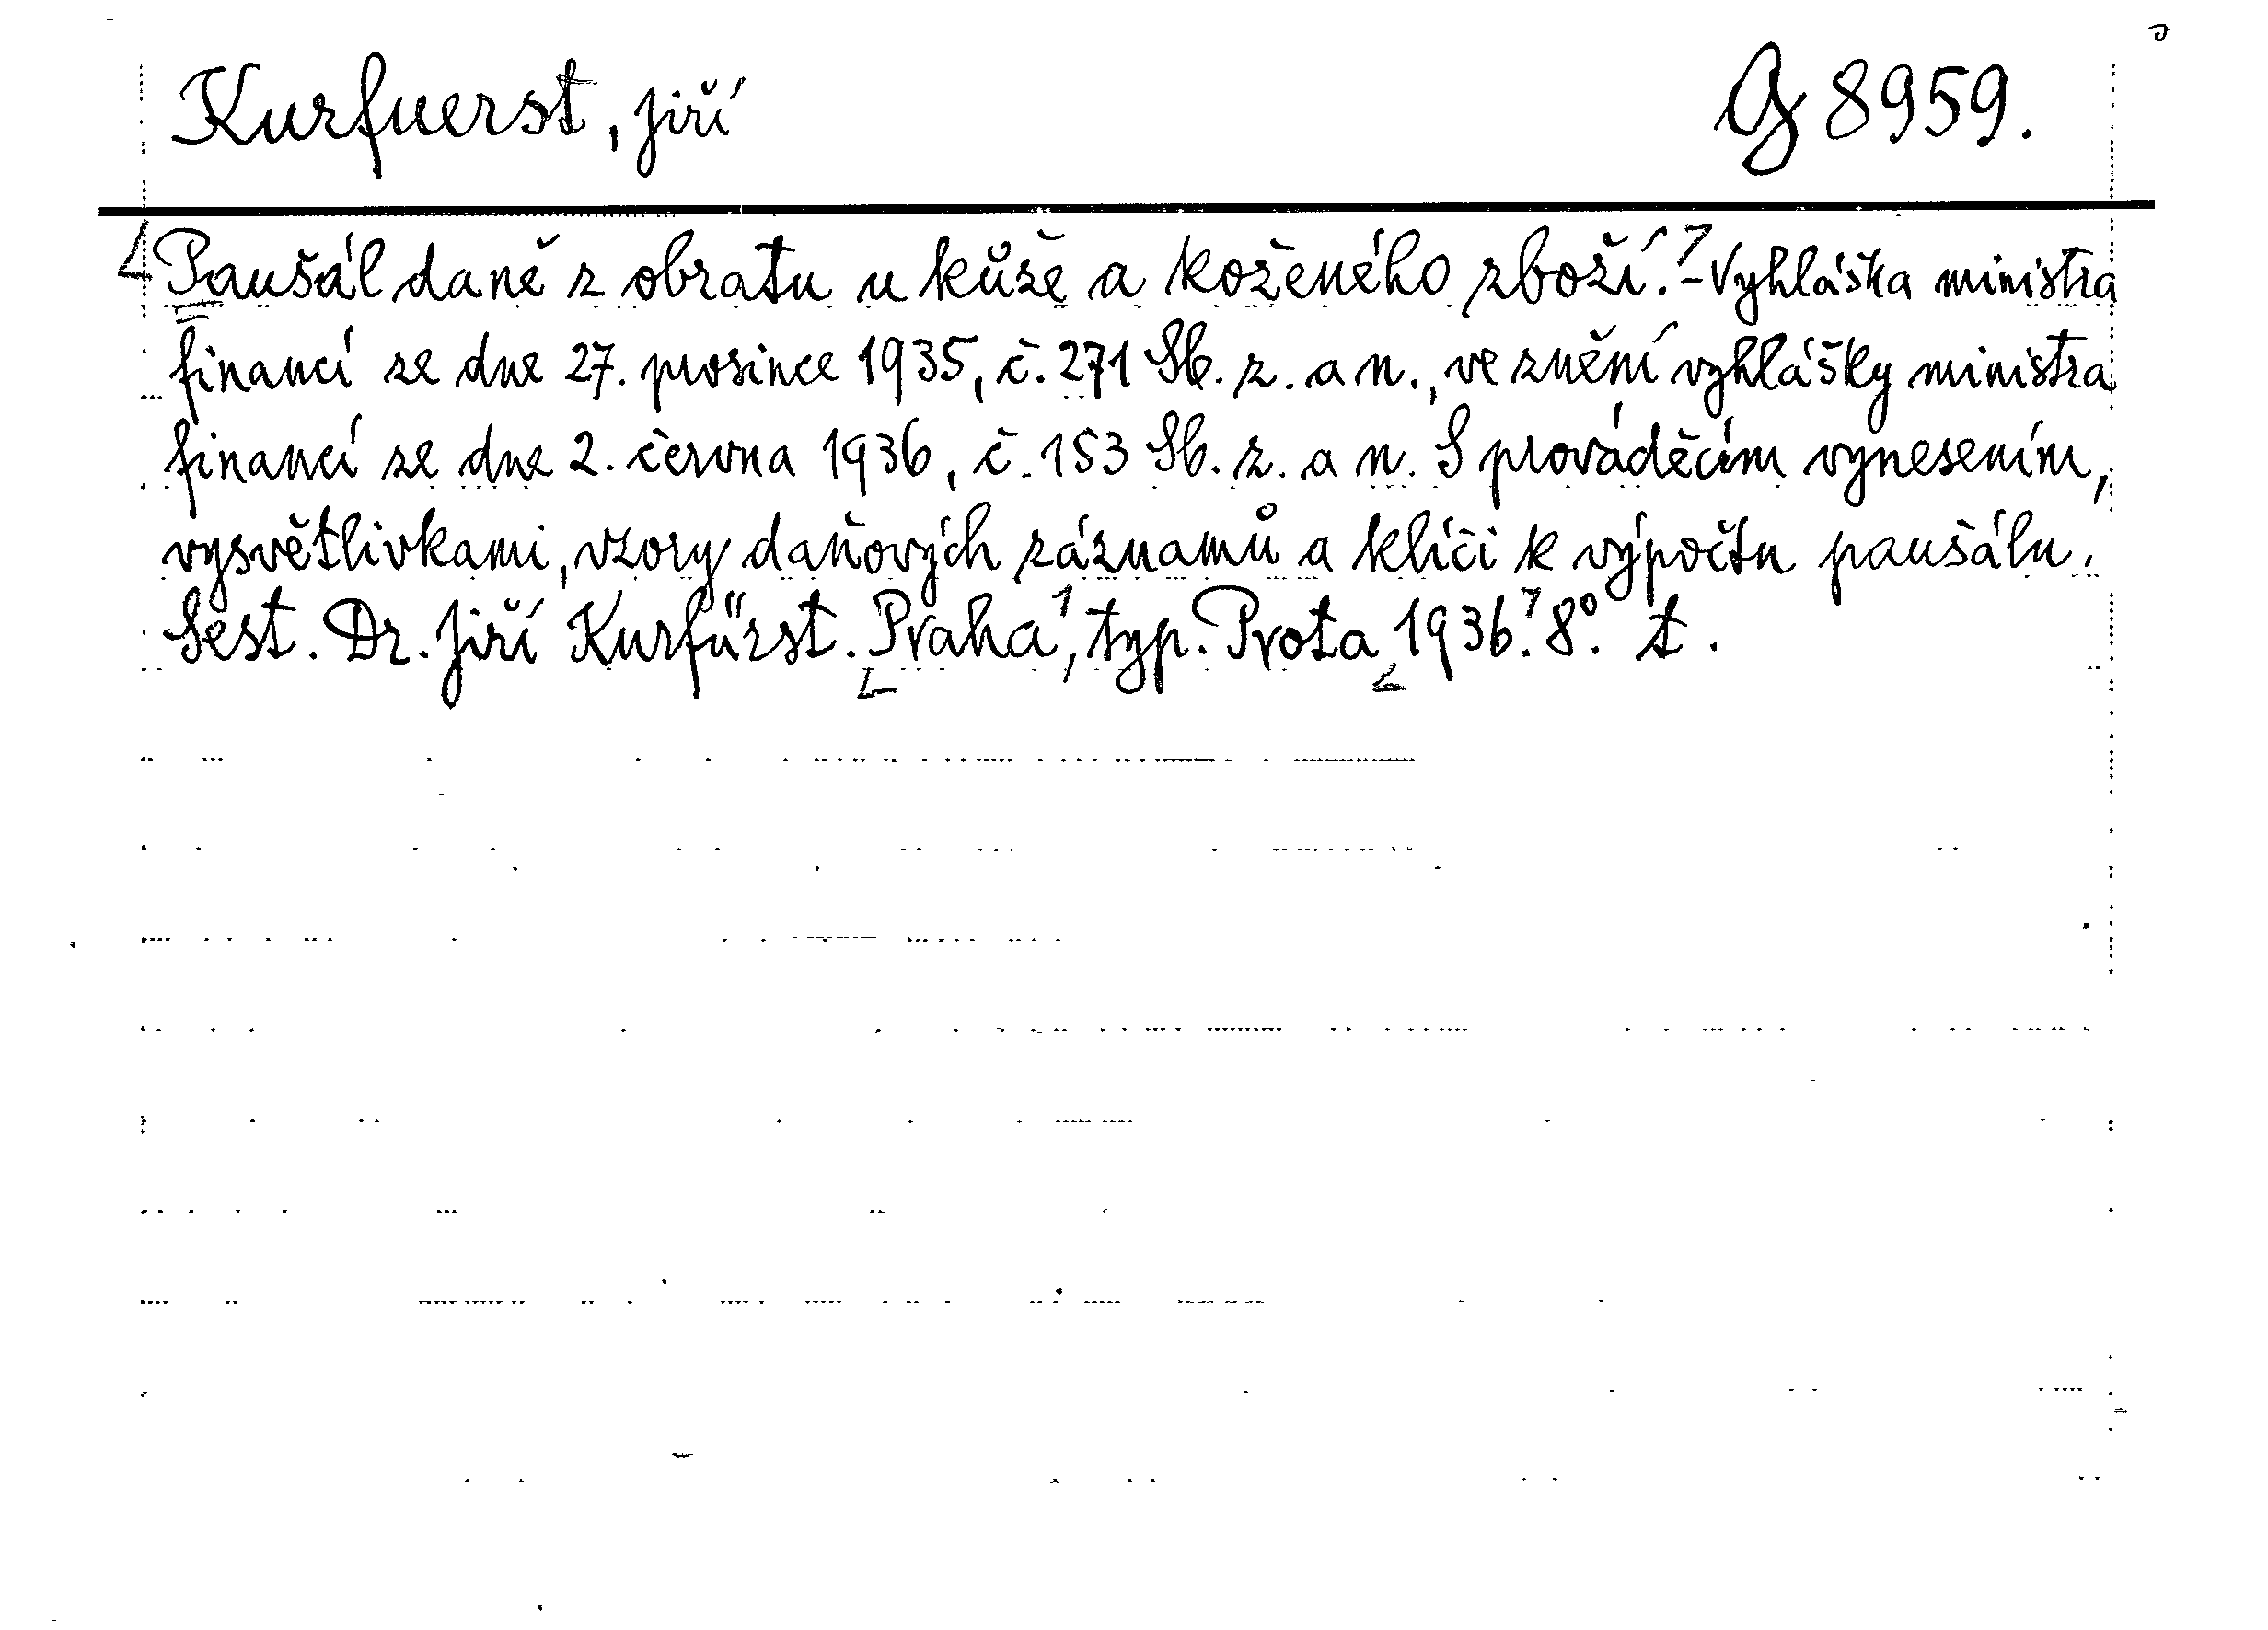 Kurfuerst, Jiří
G 8959.
Paušál daně z obratu u kůže a koženého zboží. - Vyhláška ministra
financí ze dne 27. prosince 1935, č. 271 Sb. z. a n., ve znění vyhlášky ministra
financí ze dne 2. června 1936, č. 153 Sb. z. a n. S prováděcím vynesením,
vysvětlivkami, vzory daňových záznamů a klíči k výpočtu paušálu.
Sest. Dr. Jiří Kurfürst. Praha, typ. Prota 1936. 8°. t.